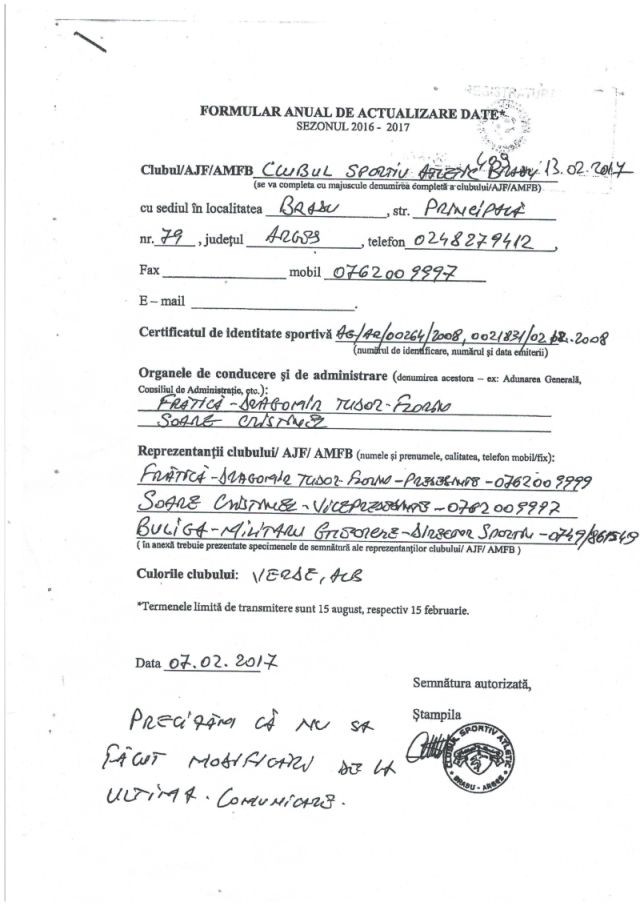 REGISTRATURA
FORMULAR ANUAL DE ACTUALIZARE DATE*
SEZONUL 2016 - 2017
499 13.02.2017
Clubul/AJF/AMFB CLUBUL SPORTIV ATLETIC BRADU
(se va completa cu majuscule denumirea completă a clubului/AJF/AMFB)
cu sediul în localitatea BRADU, str. PRINCIPALĂ
nr. 79, județul ARGEȘ, telefon 0248279412,
Fax mobil 0762009997
E – mail .
Certificatul de identitate sportivă AG/A2/00264/2008, 0021831/02.12.2008
(numărul de identificare, numărul și data emiterii)
Organele de conducere și de administrare (denumirea acestora – ex: Adunarea Generală,
Consiliul de Administrație, etc.):
FRĂTICĂ-DRAGOMIR TUDOR-FLORIN
SOARE CRISTINEL
Reprezentanții clubului/ AJF/ AMFB (numele și prenumele, calitatea, telefon mobil/fix):
FRĂTICĂ-DRAGOMIR TUDOR-FLORIN-PREȘEDINTE-0762009999
SOARE CRISTINEL-VICEPREȘEDINTE-0762009997
BULIGA-MILITARU GRIGORE-DIRECTOR SPORTIV-0749/861549
( în anexă trebuie prezentate specimenele de semnătură ale reprezentanților clubului/ AJF/ AMFB )
Culorile clubului: VERDE, ALB
*Termenele limită de transmitere sunt 15 august, respectiv 15 februarie.
Data 07.02.2017
Semnătura autorizată,
Ștampila
PRECIZĂM CĂ NU SA
FĂCUT MODIFICĂRI DE LA
ULTIMA COMUNICARE.
CLUBUL SPORTIV ATLETIC
* BRADU - ARGEȘ *